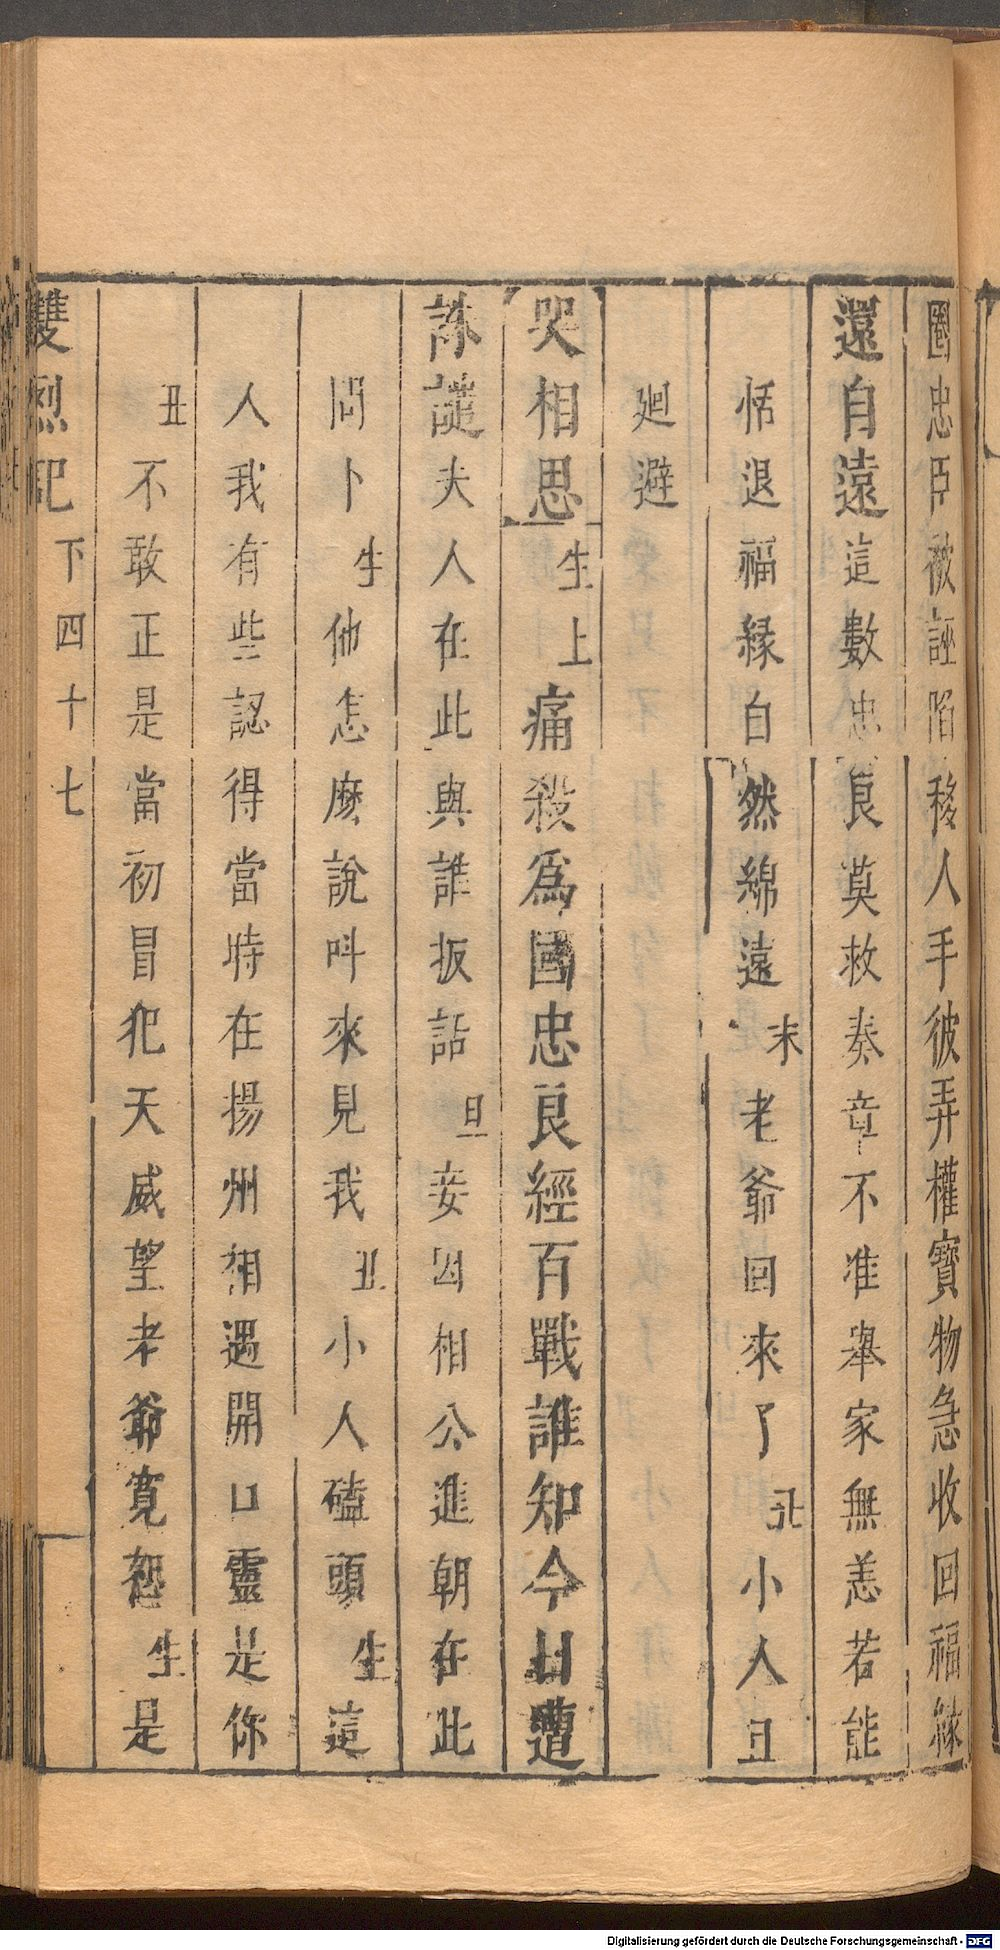 圈忠臣被誣陷移人手彼弄權寶物急收回福緣
還自遠這數忠良莫救奏章不准舉家無恙若能
恬退福緣自然綿遠末老爺回來了丑小人且
廻避
哭相思生上痛殺爲國忠良經百戰誰知今日遭
誅譴夫人在此與誰扳話旦妾因相公進朝在此
問卜生他怎麽說呌來見我丑小人磕頭生這
人我有些認得當時在揚州相遇開口靈是你
丑不敢正是當初冒犯天威望老爺寬恕生是
雙烈記下四十七
Digitalisierung gefördert durch die Deutsche Forschungsgemeinschaft - DFG